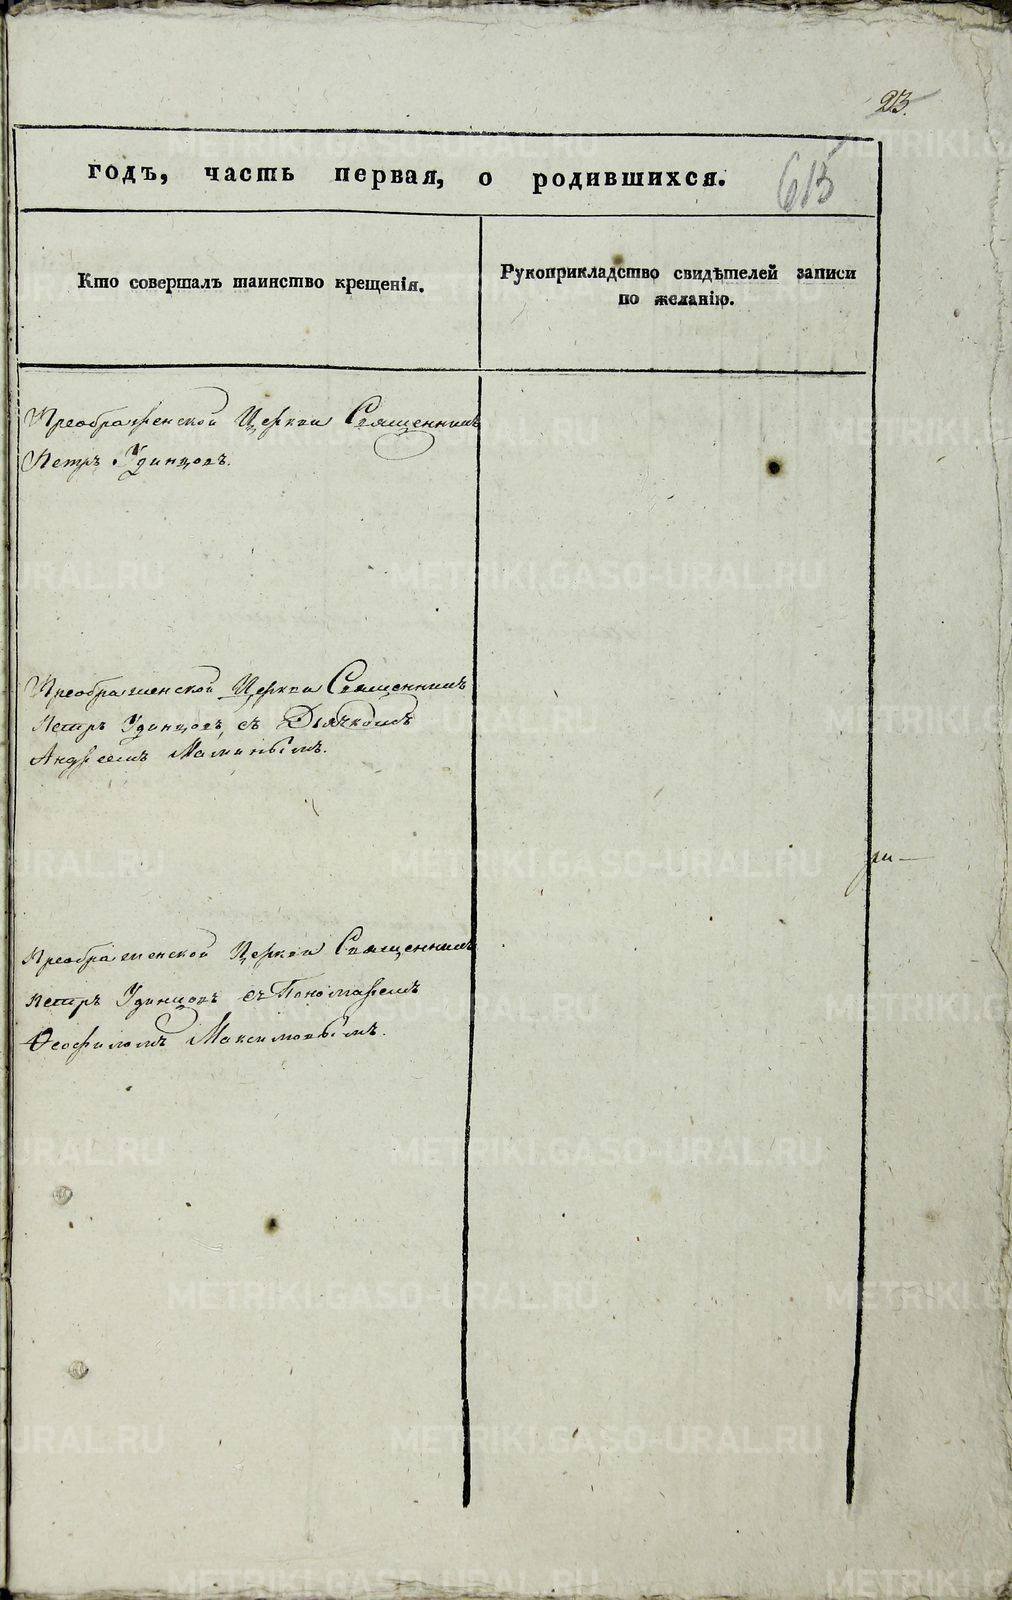 23.
годъ, часть первая, о родившихся.
613
Кто совершалъ таинство крещенія.
Рукоприкладство свидѣтелей записи
по желанію.
Преображенской Церкви Священникъ
Петръ Удинцовъ.
Преображенской Церкви Священникъ
Петръ Удинцовъ, съ Дьячкомъ
Андреемъ Маминымъ.
Преображенской Церкви Священникъ
Петръ Удинцовъ съ Пономаремъ
Ѳеофиломъ Максимовымъ.
METRIKI.GASO-URAL.RU